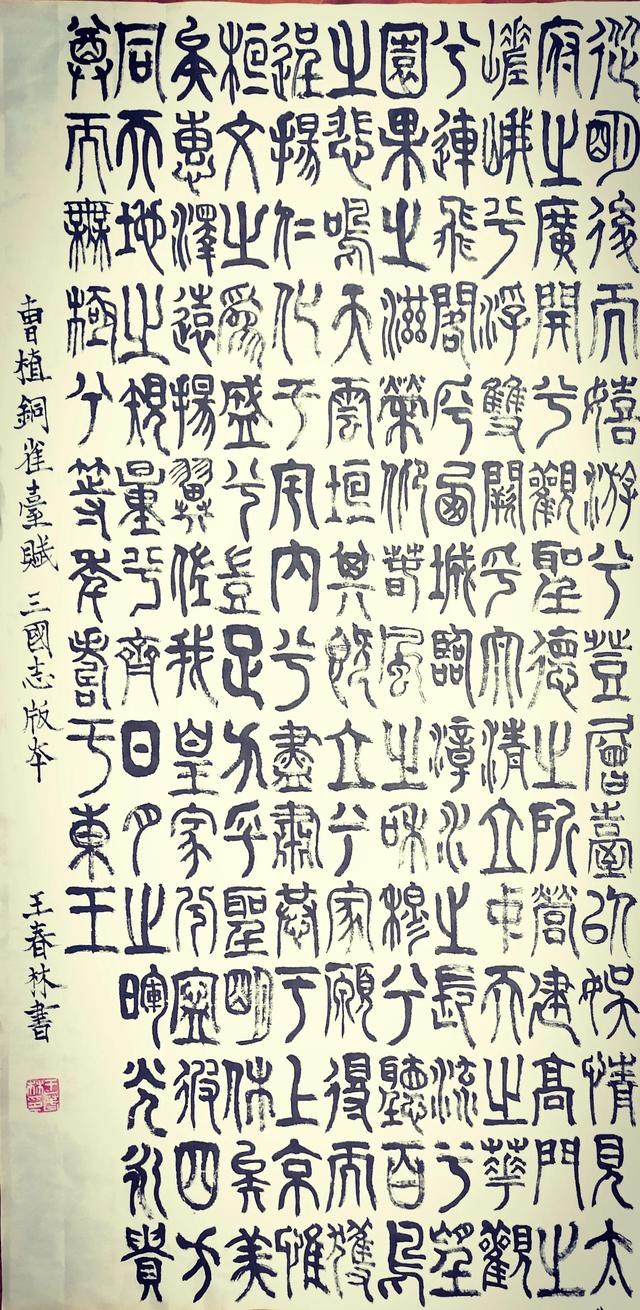 從明後而嬉游兮登層臺以娛情見太
府之廣開兮觀聖德之所營建高門之
嵯峨兮浮雙闕乎太清立中天之華觀
兮連飛閣乎西城臨漳水之長流兮望
園果之滋榮仰春風之和穆兮聽百鳥
之悲鳴天雲垣其既立兮家願得而獲
逞揚仁化于宇內兮盡肅恭于上京惟
桓文之為盛兮豈足方乎聖明休矣美
矣惠澤遠揚翼佐我皇家兮寧彼四方
同天地之規量兮齊日月之暉光永貴
尊而無極兮等年壽于東王
曹植銅雀臺賦 三國志版本 王春林書